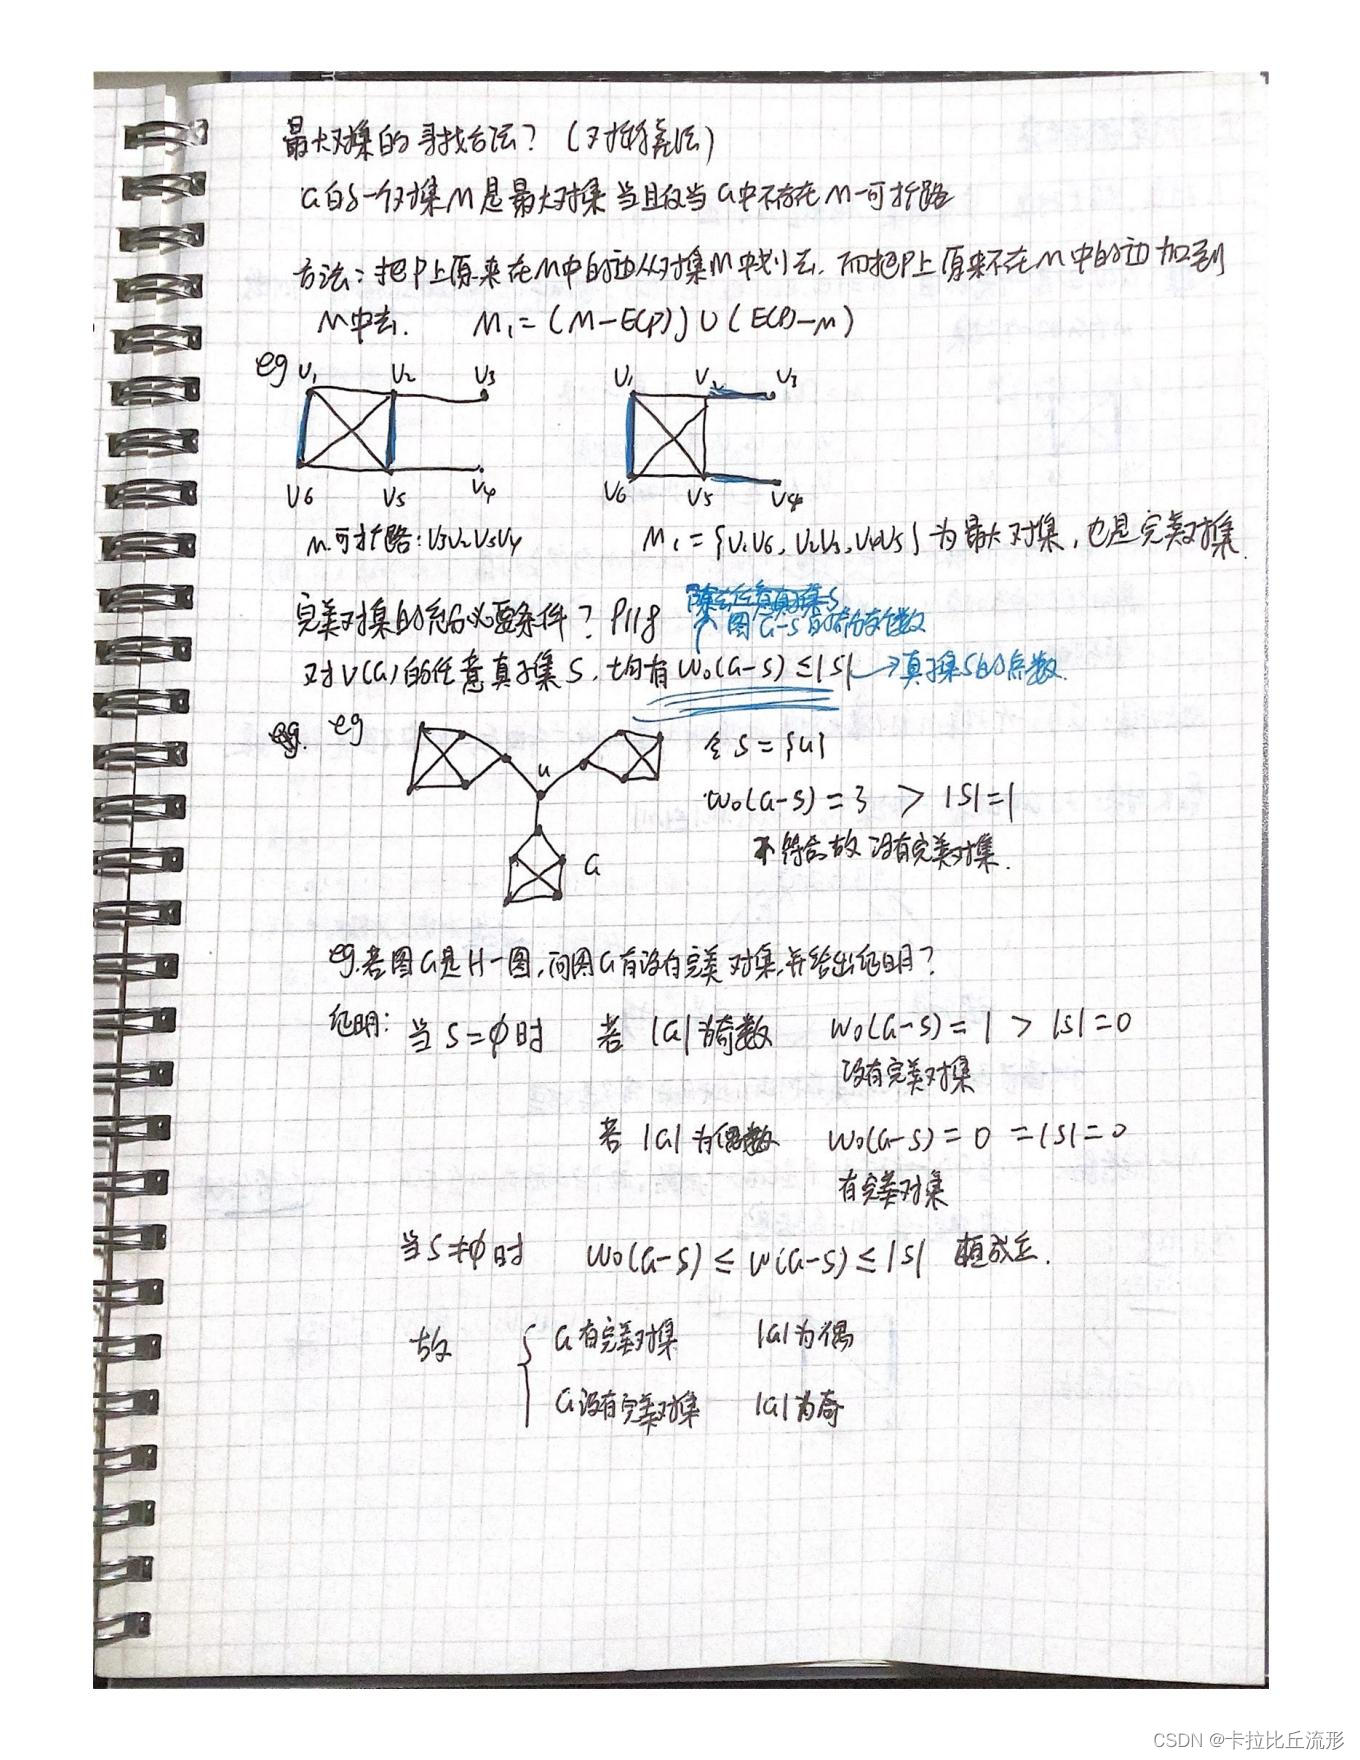 最大对集的寻找方法?(对称差法)
G的一个对集M是最大对集当且仅当G中不存在M-可扩路
方法:把P上原来在M中的边从对集M中划去,而把P上原来不在M中的边加到
M中去. M₁=(M-E(P))∪(E(P)-M)
eg V₁ V₂ V₃ V₁ V₂ V₃
V6 V5 V4 V6 V5 V4
M可扩路:V3V2V5V4 M₁={V₁V6, V2V3, V4V5}为最大对集,也是完美对集.
除去任意真子集S
完美对集的充分必要条件?P118 图G-S的奇分支数
对V(G)的任意真子集S,均有W₀(G-S)≤|S|→真子集S的点数
eg. eg
令S={u}
u
W₀(G-S)=3 > |S|=1
不符合,故没有完美对集.
G
eg.若图G是H-图,问图G有没有完美对集,并给出证明?
证明:当S=∅时 若|G|为奇数 W₀(G-S)=1 > |S|=0
没有完美对集
若|G|为偶数 W₀(G-S)=0 =|S|=0
有完美对集
当S≠∅时 W₀(G-S)≤W(G-S)≤|S| 恒成立.
故 { G有完美对集 |G|为偶
G没有完美对集 |G|为奇
CSDN @卡拉比丘流形